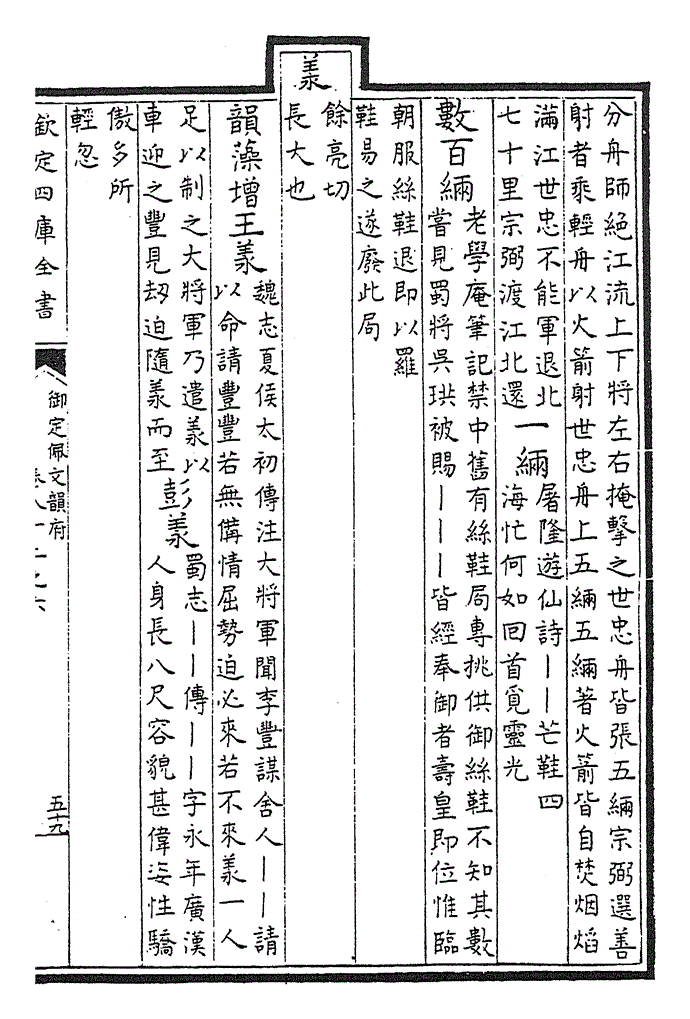 分舟師絶江流上下將左右掩擊之世忠舟皆張五緉宗弼選善
射者乘輕舟以火箭射世忠舟上五緉五緉著火箭皆自焚烟焰
滿江世忠不能軍退北
七十里宗弼渡江北還
一緉
屠隆遊仙詩｜｜芒鞋四
海忙何如回首覓靈光
數百緉
老學庵筆記禁中舊有絲鞋局專挑供御絲鞋不知其數
嘗見蜀將吳珙被賜｜｜｜皆經奉御者壽皇即位惟臨
朝服絲鞋退即以羅
鞋易之遂廢此局
羕
餘亮切
長大也
韻藻增王羕
魏志夏侯太初傳注大將軍聞李豐謀舍人｜｜請
以命請豐豐若無備情屈勢迫必來若不來羕一人
足以制之大將軍乃遣羕以
車迎之豐見刼迫隨羕而至
彭羕
蜀志｜｜傳｜｜字永年廣漢
人身長八尺容貌甚偉姿性驕
傲多所
輕忽
欽定四庫全書
御定佩文韻府
五十九